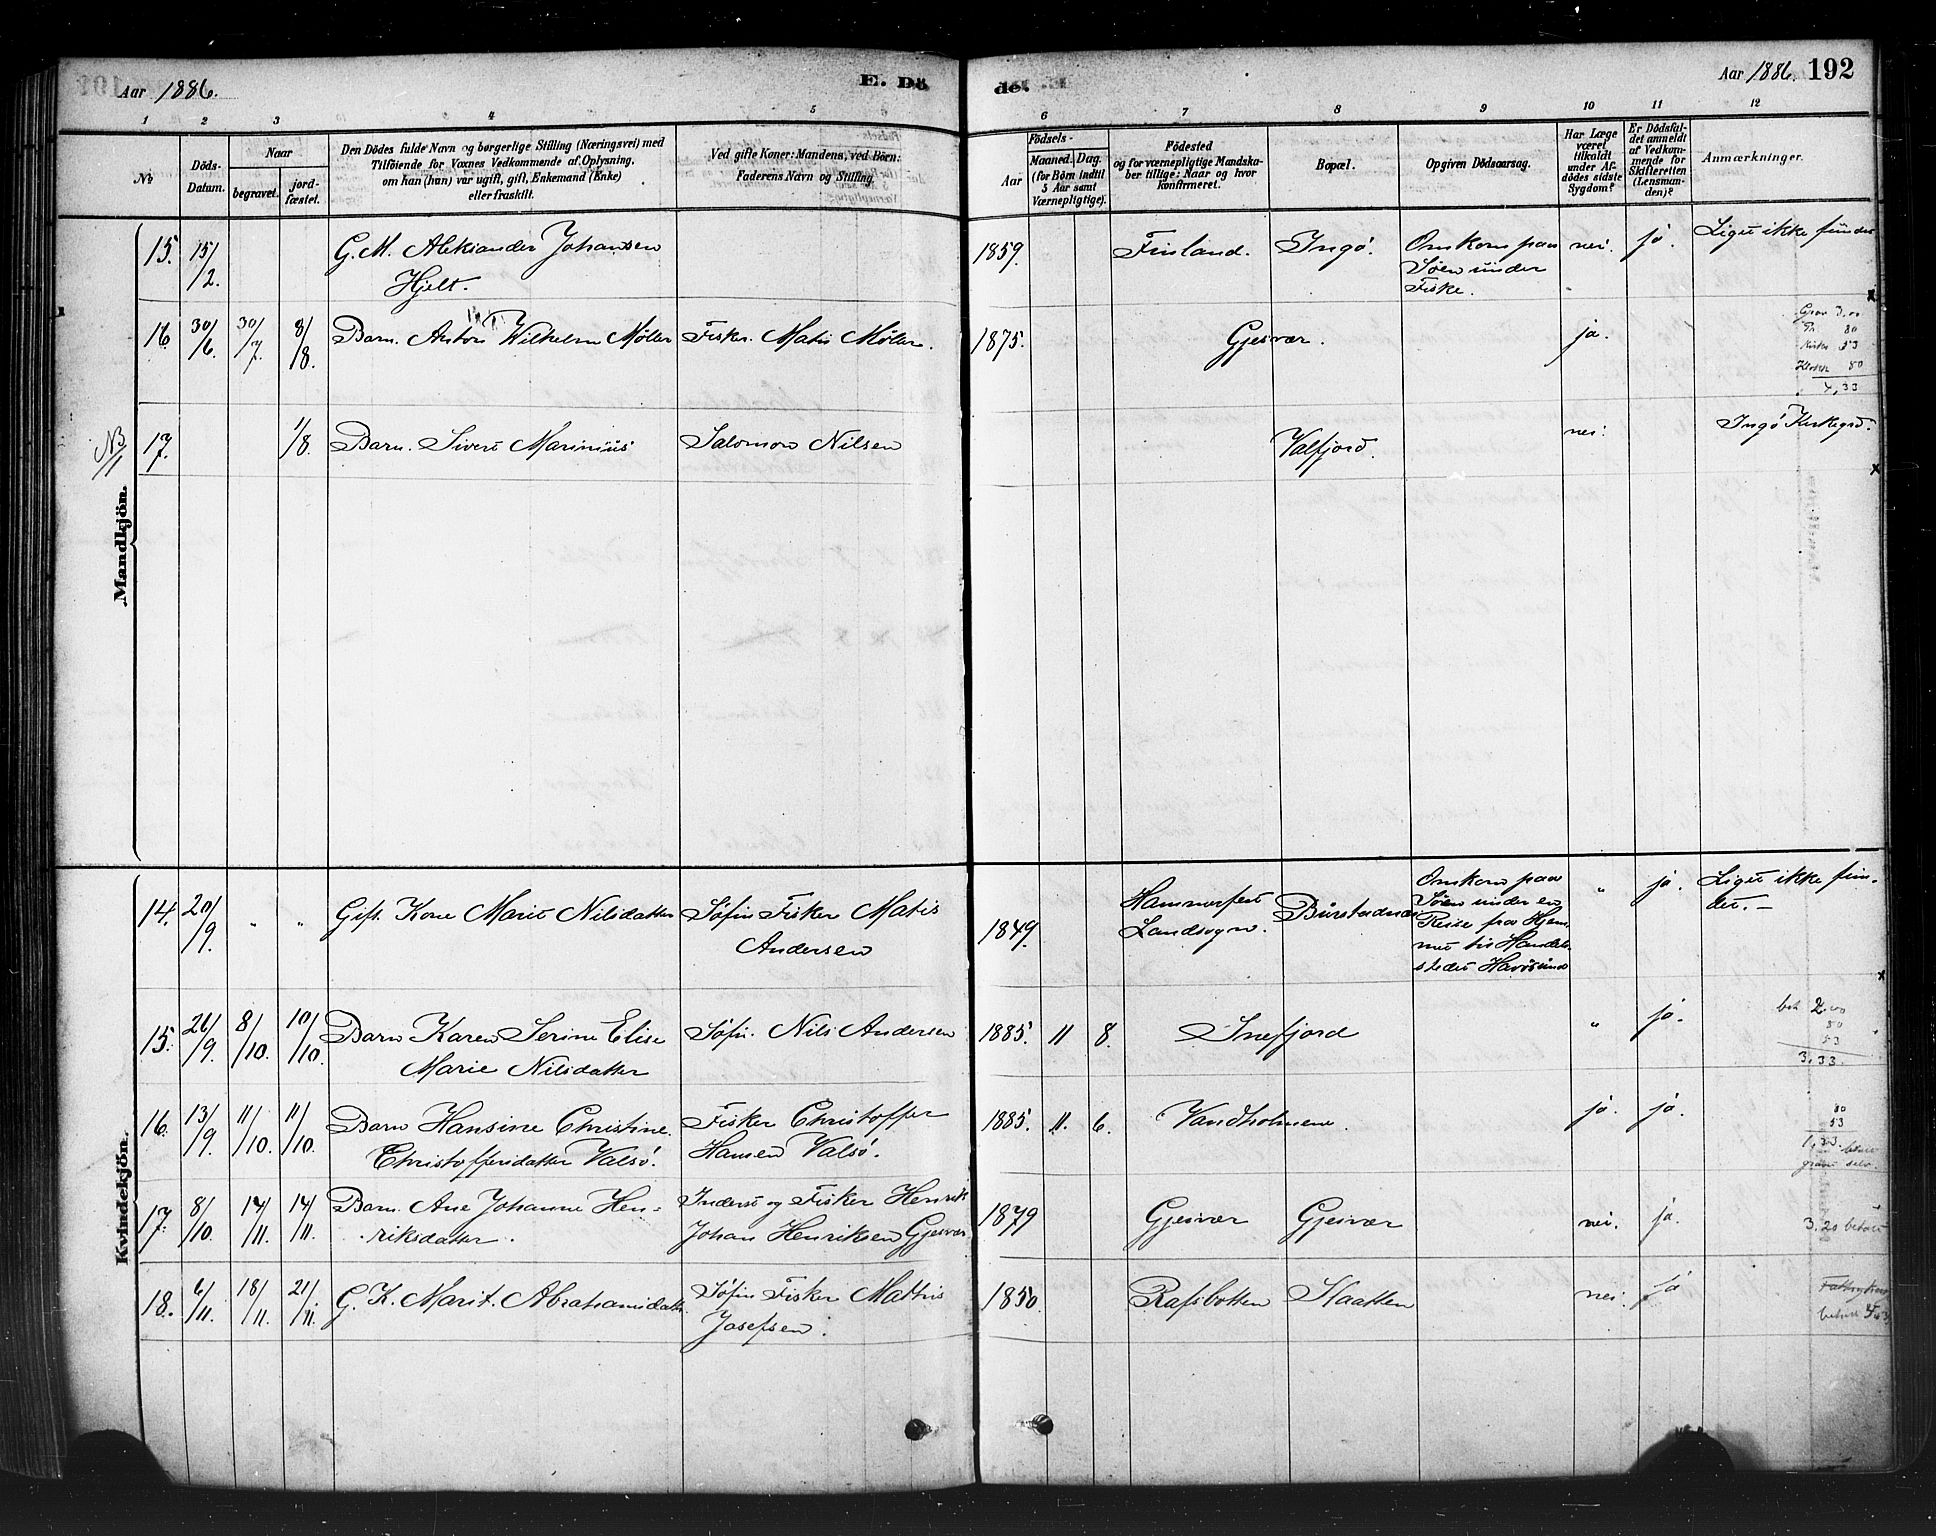 Aar 1886.
E. Dö
de.
Aar 1886. 192
1 2 3 4 5 6 7 8 9 10 11 12
No
Döds-Datum.
Naar
begravet.
jordfæstet.
Den Dödes fulde Navn og borgerlige Stilling (Næringsvei) med
Tilföiende for Voxnes Vedkommende af Oplysning,
om han (hun) var ugift, gift, Enkemand (Enke)
eller fraskilt.
Ved gifte Koner: Mandens, ved Börn:
Faderens Navn og Stilling.
Födsels-
Aar
Maaned. Dag.
(for Börn indtil
5 Aar samt
Værnepligtige).
Födested
og for værnepligtige Mandska-
ber tillige: Naar og hvor
konfirmeret.
Bopæl.
Opgiven Dödsaarsag.
Har Læge
været
tilkaldt
under Af-
dödes sidste
Sygdom?
Er Dödsfal-
det anmeldt
af Vedkom-
mende for
Skifteretten
(Lensman-
den)?
Anmærkninger.
Mandkjön.
15. 15/2. G. M. Aleksander Johansen Hjelt. 1859. Finland. Ingö. Omkom paa Söen under Fiske. nei. ja. Liget ikke fundet
16 30/6 30/7. 8/8. Barn. Anton Wilhelm Møller Fisker. Matis Møller. 1875. Gjesvær. ja. Grav 3,00
80
53
Klokk 80
4,33
NB
17. 1/8. Barn. Sivert Marinius Salomon Nilsen Valfjord. nei. Ingö Kirkegrd.
Kvindekjön.
14. 20/9. " " Gift Kone Marit Nilsdatter Söfin Fisker Matis Andersen 1849. Hammerfest Landsogn. Burstadnæs Omkom paa Söen under en Reise fra Hjemmet til Handelsstedet Havösund " ja. Liget ikke fundet.—
15. 26/9. 8/10. 10/10. Barn Karen Serine Elise Marie Nilsdatter Söfin. Nils Andersen 1885. 11 8. Snefjord " ja. bet 2.00
80
53
3,33.
16. 13/9. 11/10. 11/10. Barn Hansine Christine Christoffersdatter Valsö. Fisker Christoffer Hansen Valsö. 1885. 11. 6. Vandholmene. ja. ja. 80
53
1,33. betalt
gravet selv.
17. 8/10 14/11. 14/11. Barn. Ane Johanne Henriksdatter. Inderst og Fisker Henrik Johan Henriksen Gjesvær 1879 Gjesvær Gjesvær nei. ja. 3.20 betalt
18. 6/11. 18/11. 21/11. G. K. Marit. Abrahamsdatter. Söfin Fisker Mathis Josefsen. 1850. Rafsbotten Skatten nei. ja